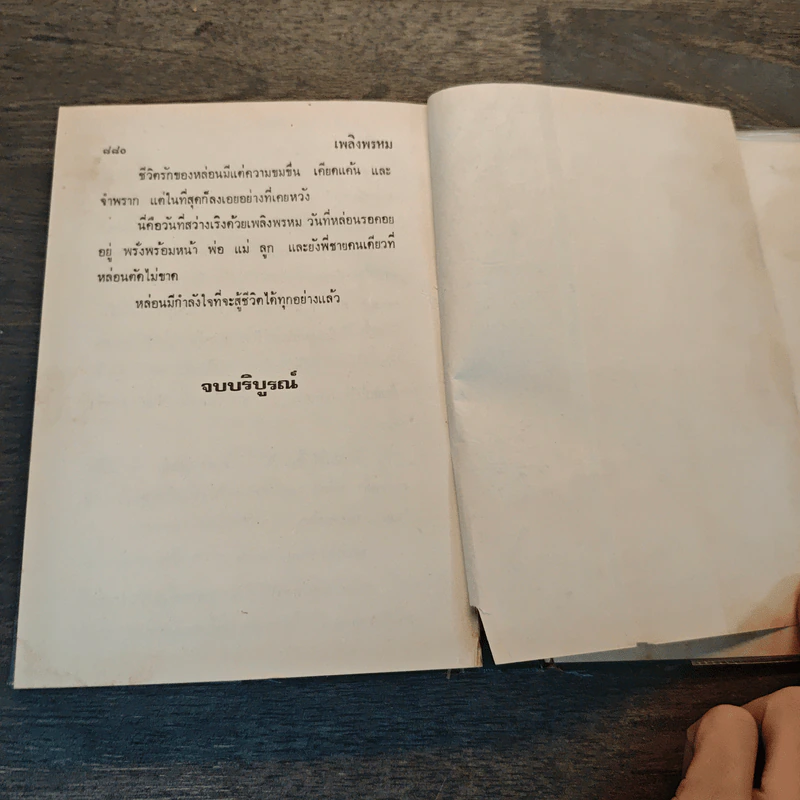 ๘๘๐ เพลิงพรหม
ชีวิตรักของหล่อนมีแต่ความขมขื่น เคียดแค้น และ
จำพราก แต่ในที่สุดก็ลงเอยอย่างที่เคยหวัง
นี่คือวันที่สว่างเริงด้วยเพลิงพรหม วันที่หล่อนรอคอย
อยู่ พรั่งพร้อมหน้า พ่อ แม่ ลูก และยังพี่ชายคนเดียวที่
หล่อนตัดไม่ขาด
หล่อนมีกำลังใจที่จะสู้ชีวิตได้ทุกอย่างแล้ว
จบบริบูรณ์